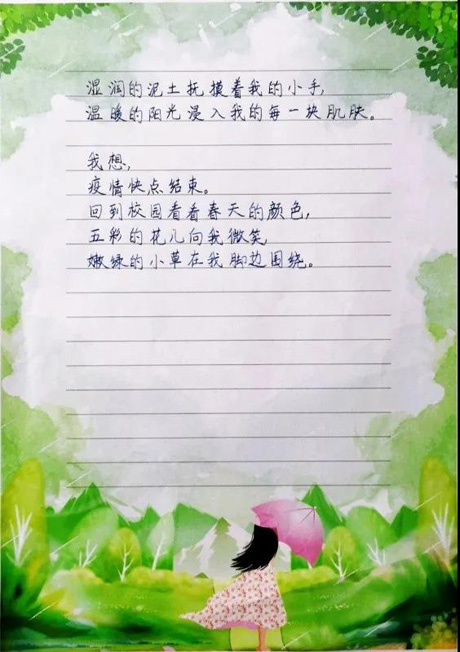 湿润的泥土抚摸着我的小手,
温暖的阳光浸入我的每一块肌肤。
我想,
疫情快点结束。
回到校园看看春天的颜色,
五彩的花儿向我微笑,
嫩绿的小草在我脚边围绕。